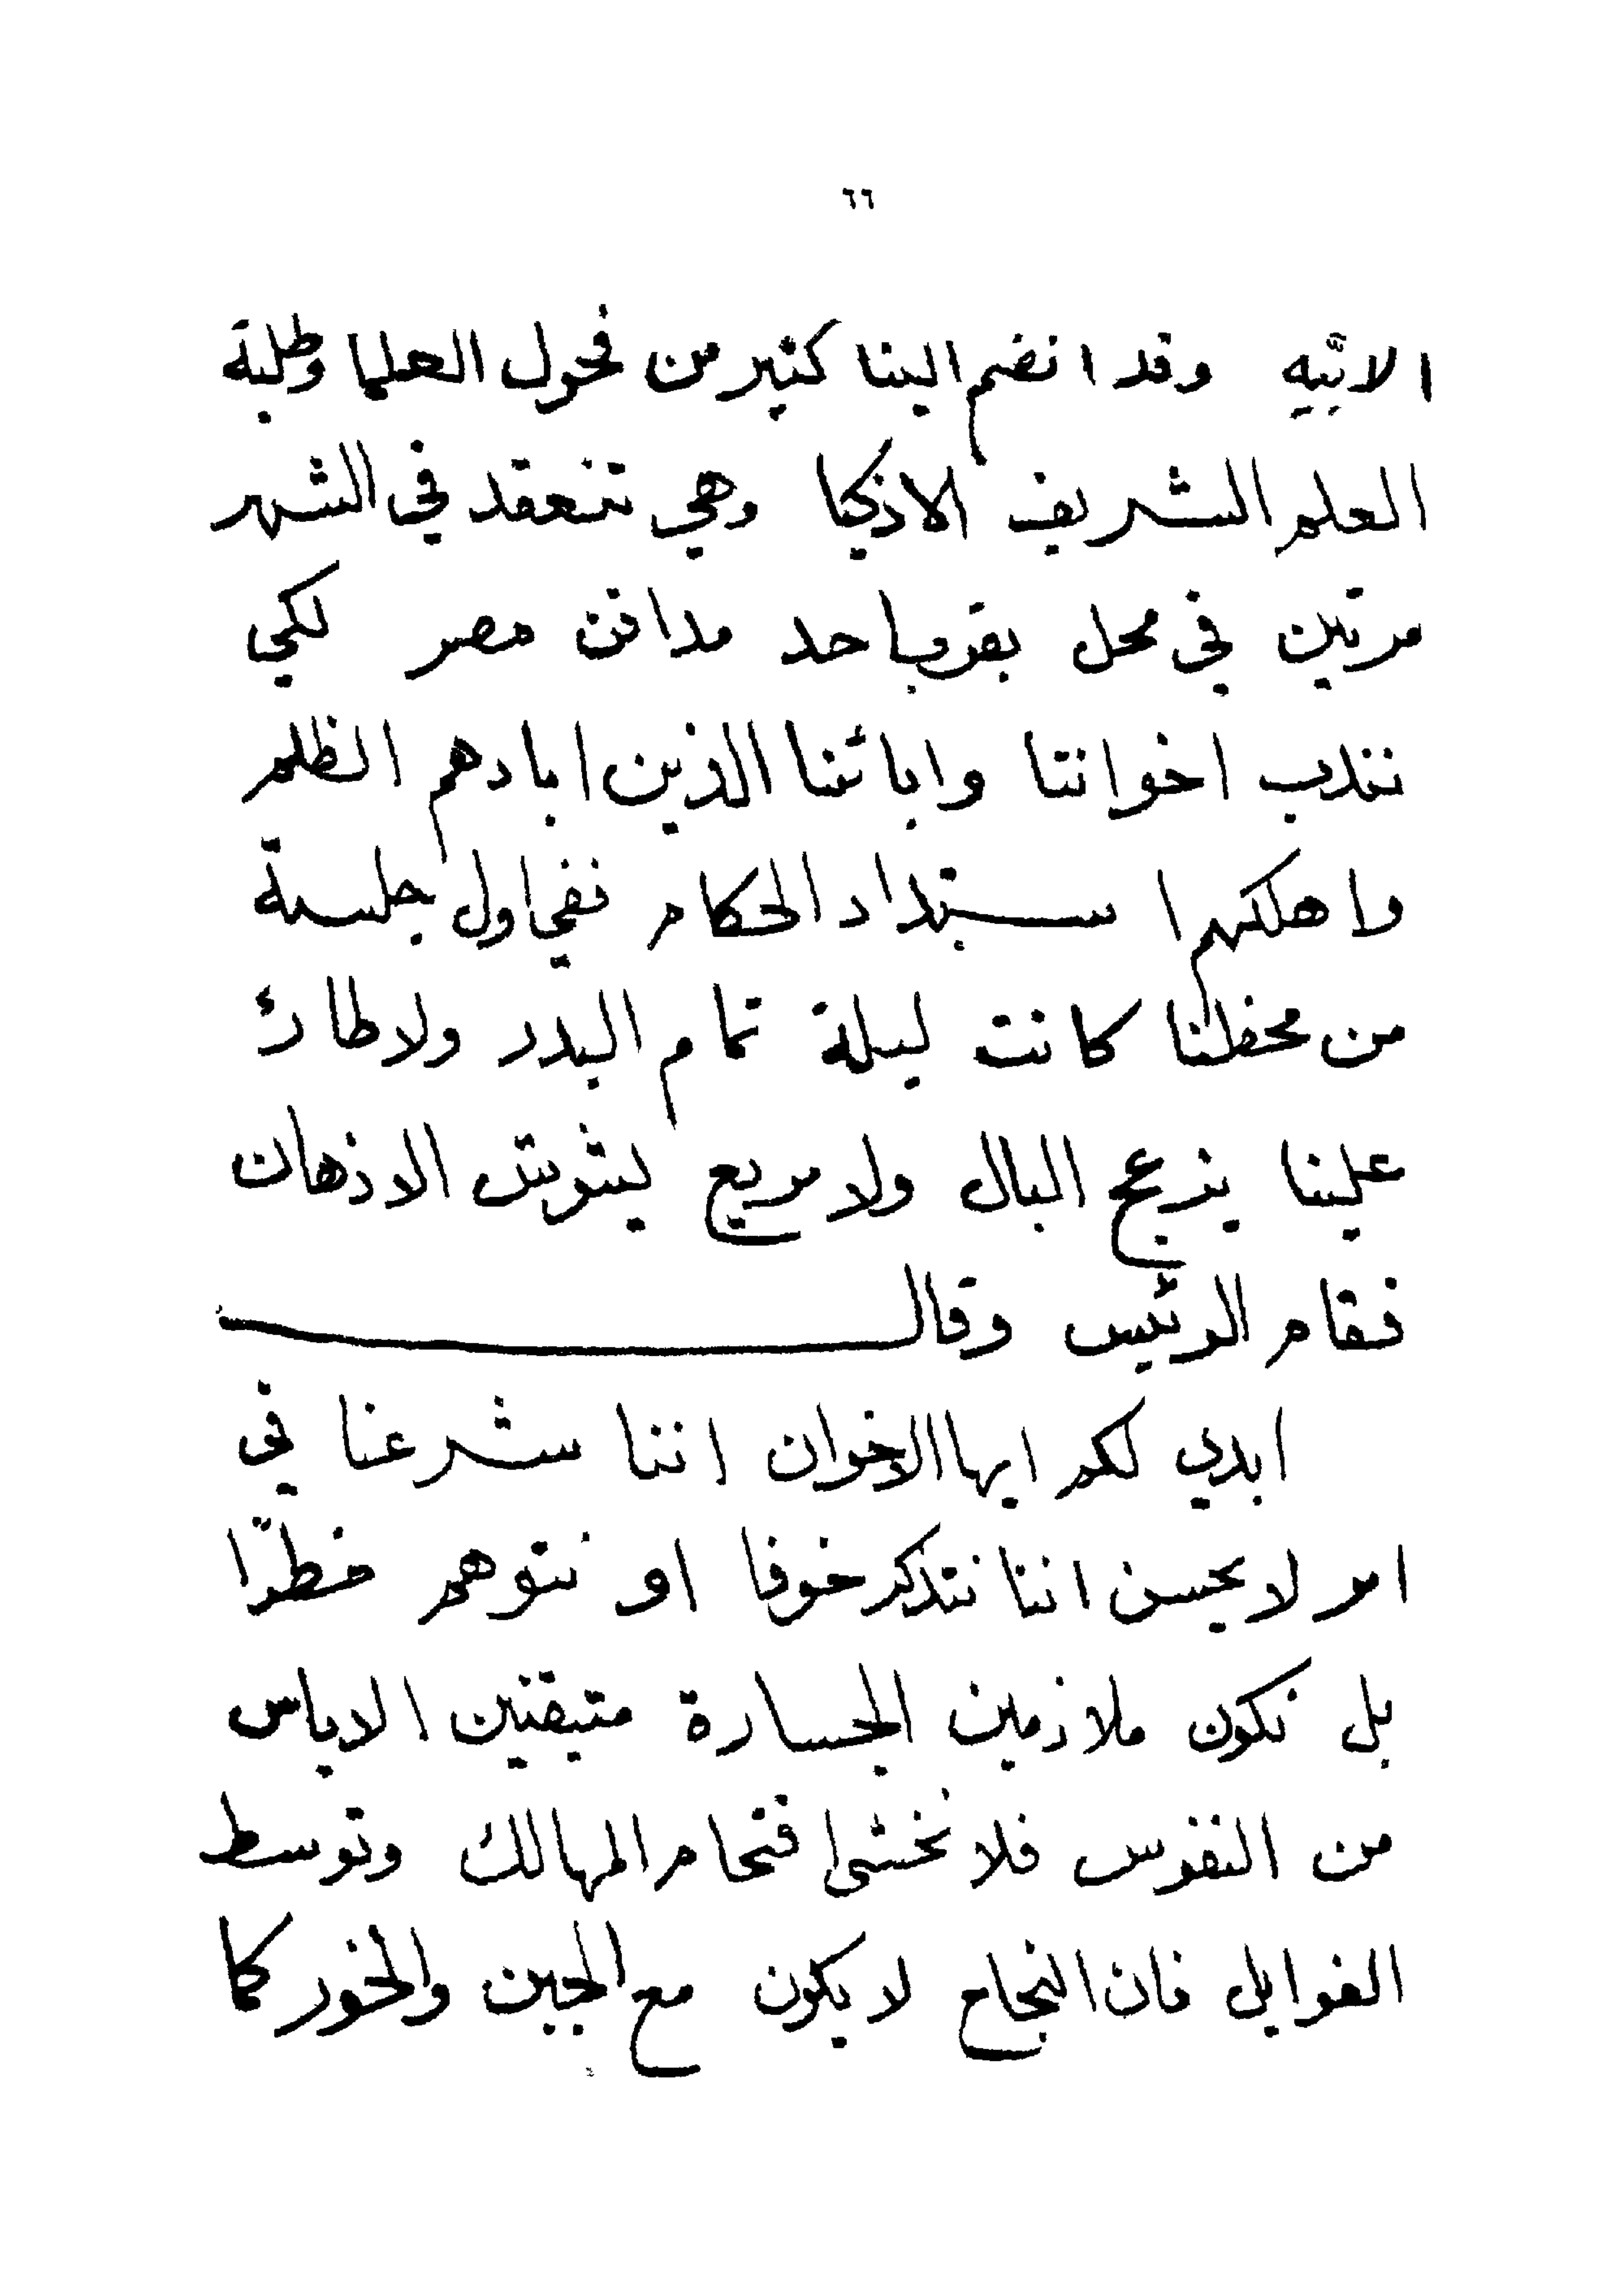 ٦٦
الابيّه وقد انضم الينا كثير من فحول العلما وطلبة
العلم الشريف الاذكيا وهي تنعقد في الشهر
مرتين في محل بقرب احد مدافن مصر لكي
نندب اخواننا وابائنا الذين ابادهم الظلم
واهلكهم استبداد الحكام ففي اول جلسة
من محفلنا كانت ليلة تمام البدر ولا طارئ
علينا يزعج البال ولا مريع يشوش الاذهان
فقام الرئيس وقال
ابدي لكم ايها الاخوان اننا شرعنا في
امر لا يحسن اننا نتذكر خوفا او نتوهم خطرًا
بل نكون ملازمين الجسارة متيقنين الاياس
من النفوس فلا نخشى اقتحام المهالك وتوسط
الغوايل فان النجاح لا يكون مع الجبن والخور كما